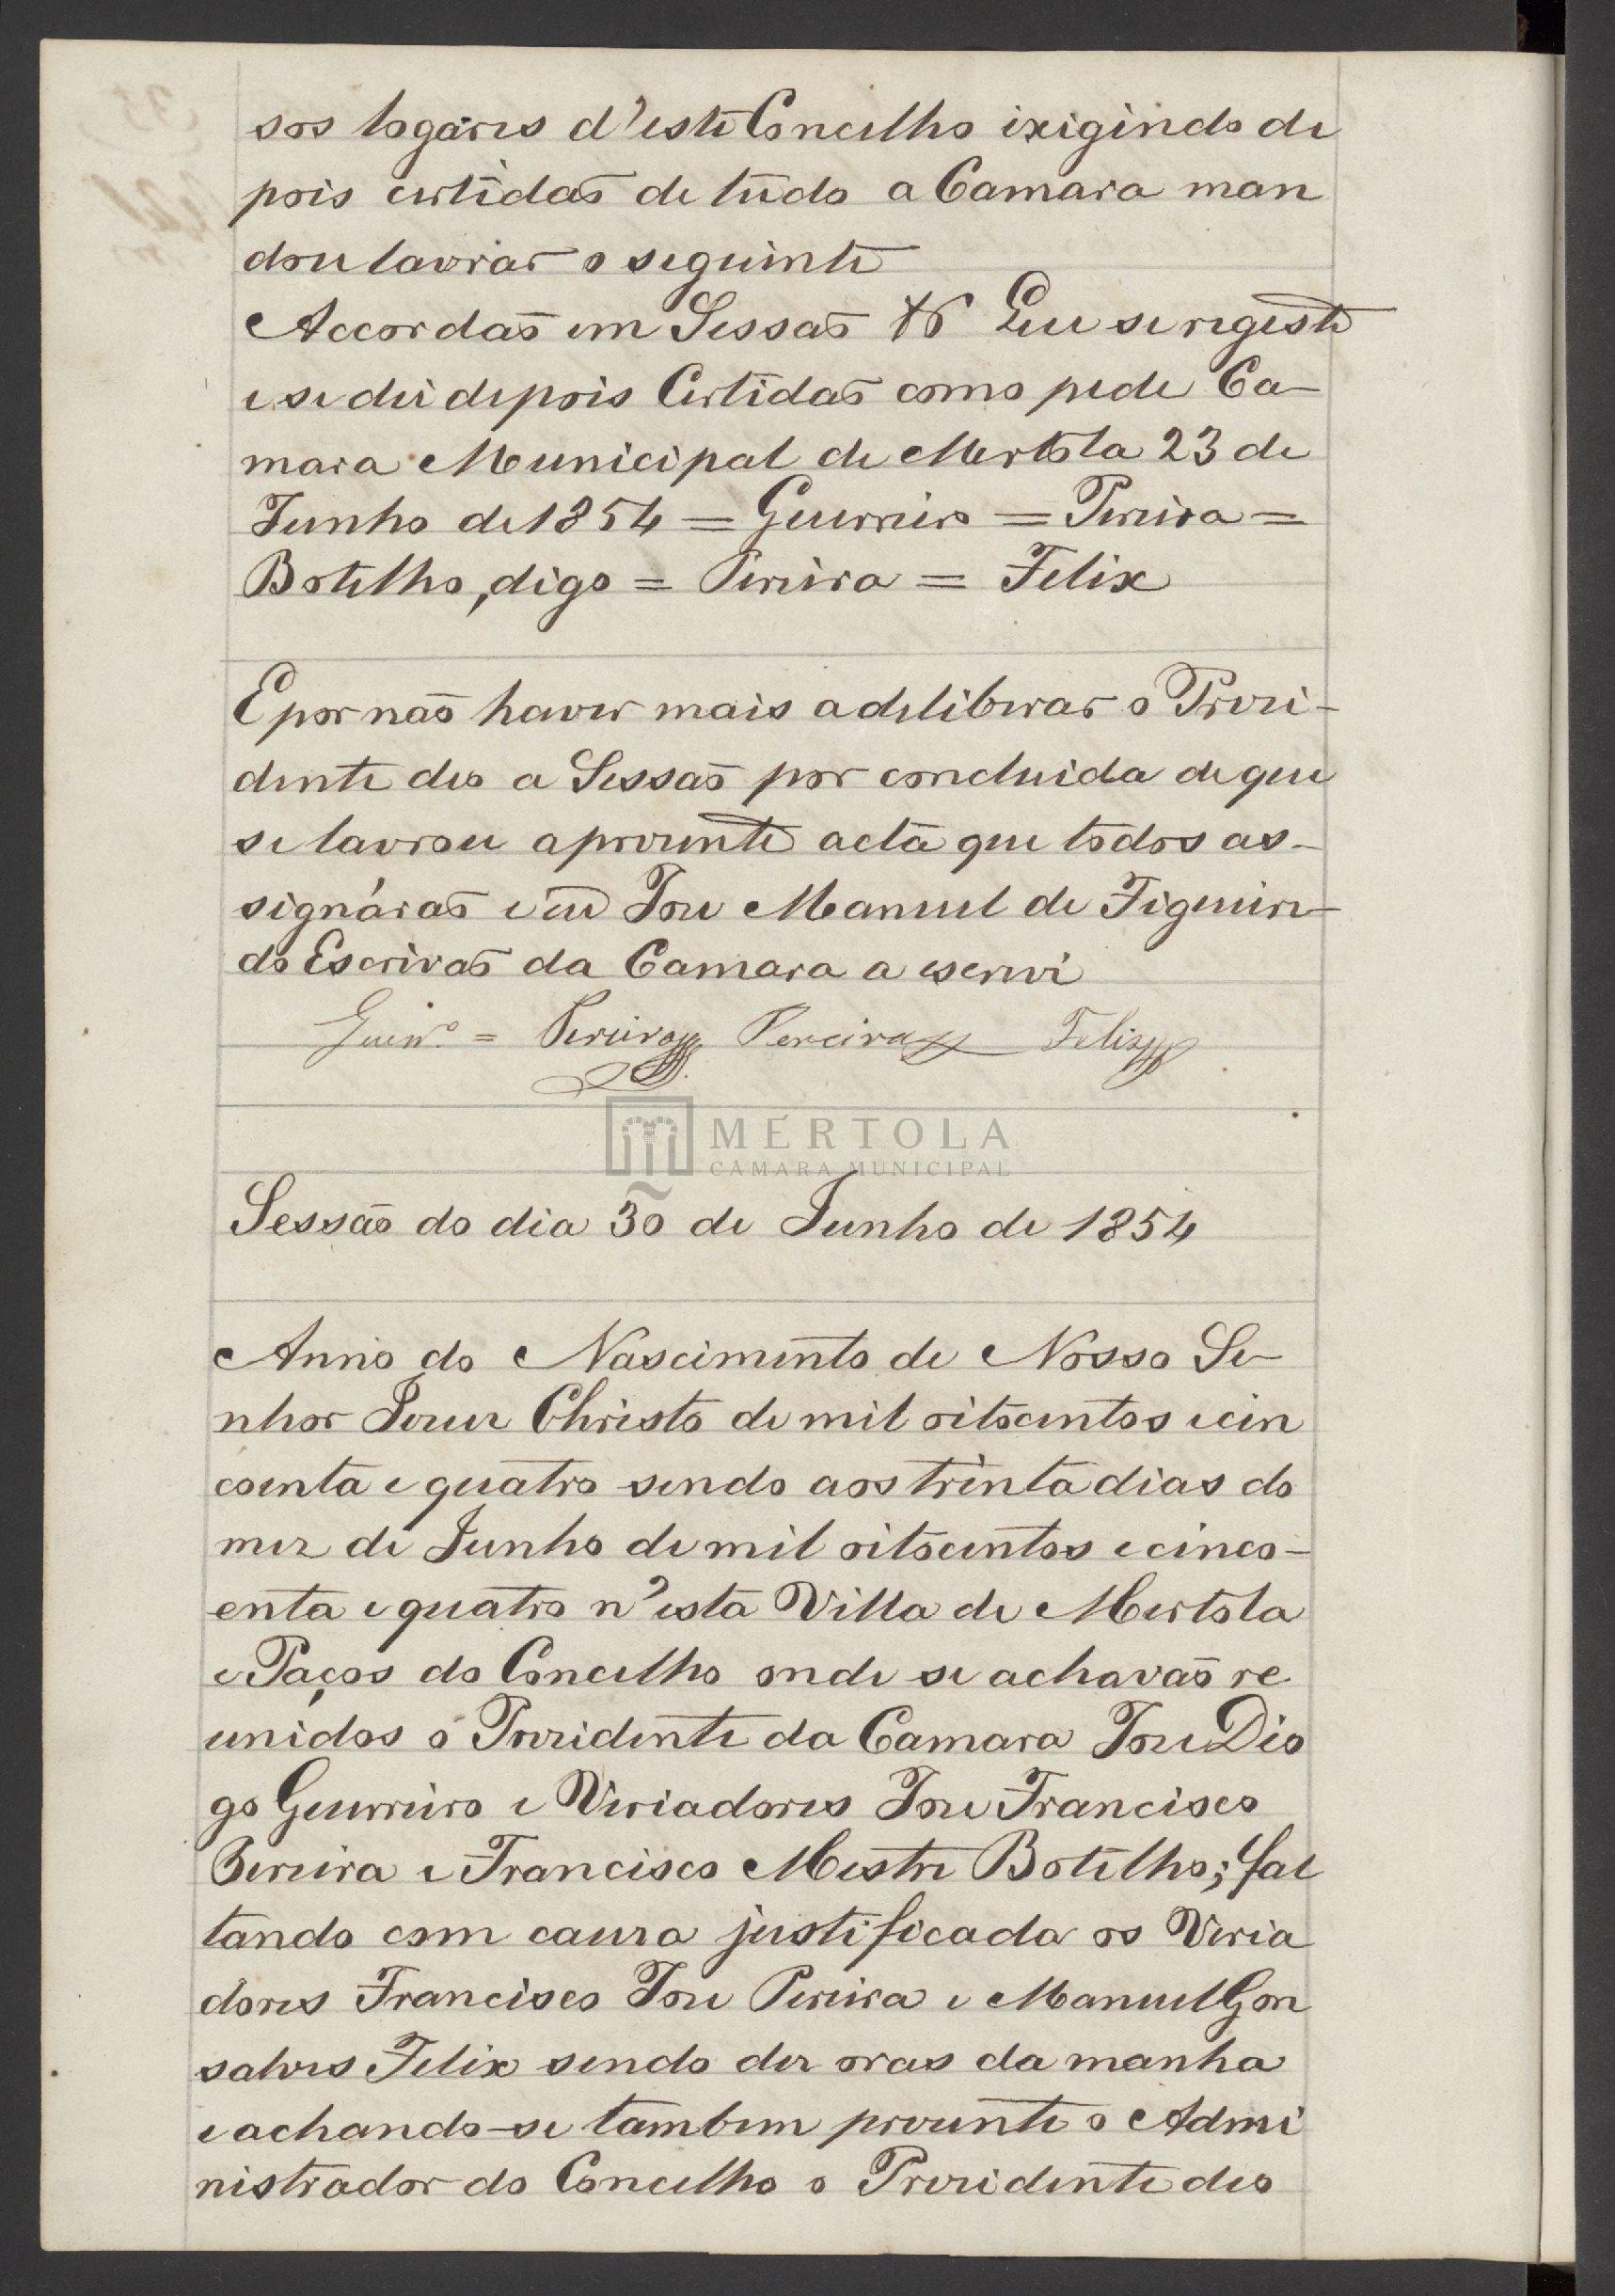 sos logares d'este Concelho exigindo de
pois certidaõ de tudo a Camara man
dou lavrar o seguinte
Accordaõ em Sessaõ Que se registe
e se dei depois Certidaõ como pede Ca-
mara Municipal de Mertola 23 de
Junho de 1854 = Guerreiro = Pereira =
Botelho, digo = Pereira = Felix
E por naõ haver mais a deliberar o Prezi-
dente deo a Sessaõ por concluida de que
se lavrou a prezente acta que todos as-
signáraõ e eu Joze Manuel de Figueire-
do Escrivaõ da Camara a escrevi
Guerr.º = Pereira Pereira Felix
MÉRTOLA
CÂMARA MUNICIPAL
Sessaõ do dia 30 de Junho de 1854
Anno do Nascimento de Nosso Se-
nhor Jezuz Christo de mil oitocentos e cin
coenta e quatro sendo aos trinta dias do
mez de Junho de mil oitocentos e cinco-
enta e quatro n'esta Villa de Mertola
e Paços do Concelho onde se achavaõ re
unidos o Prezidente da Camara Joze Dio
go Guerreiro e Veriadores Joze Francisco
Pereira e Francisco Mestre Botelho; fal
tando com cauza justificada os Veria
dores Francisco Joze Pereira e Manuel Gon
salves Felix sendo dez oras da manha
e achando-se tambem prezente o Admi
nistrador do Concelho o Prezidente deo